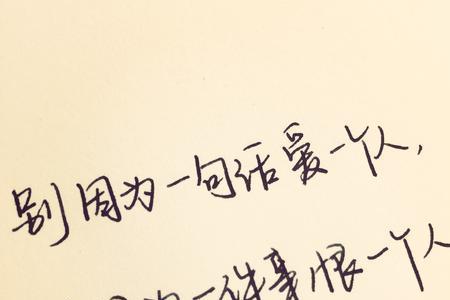 别因为一句话爱一个人，
为一件事恨一个人